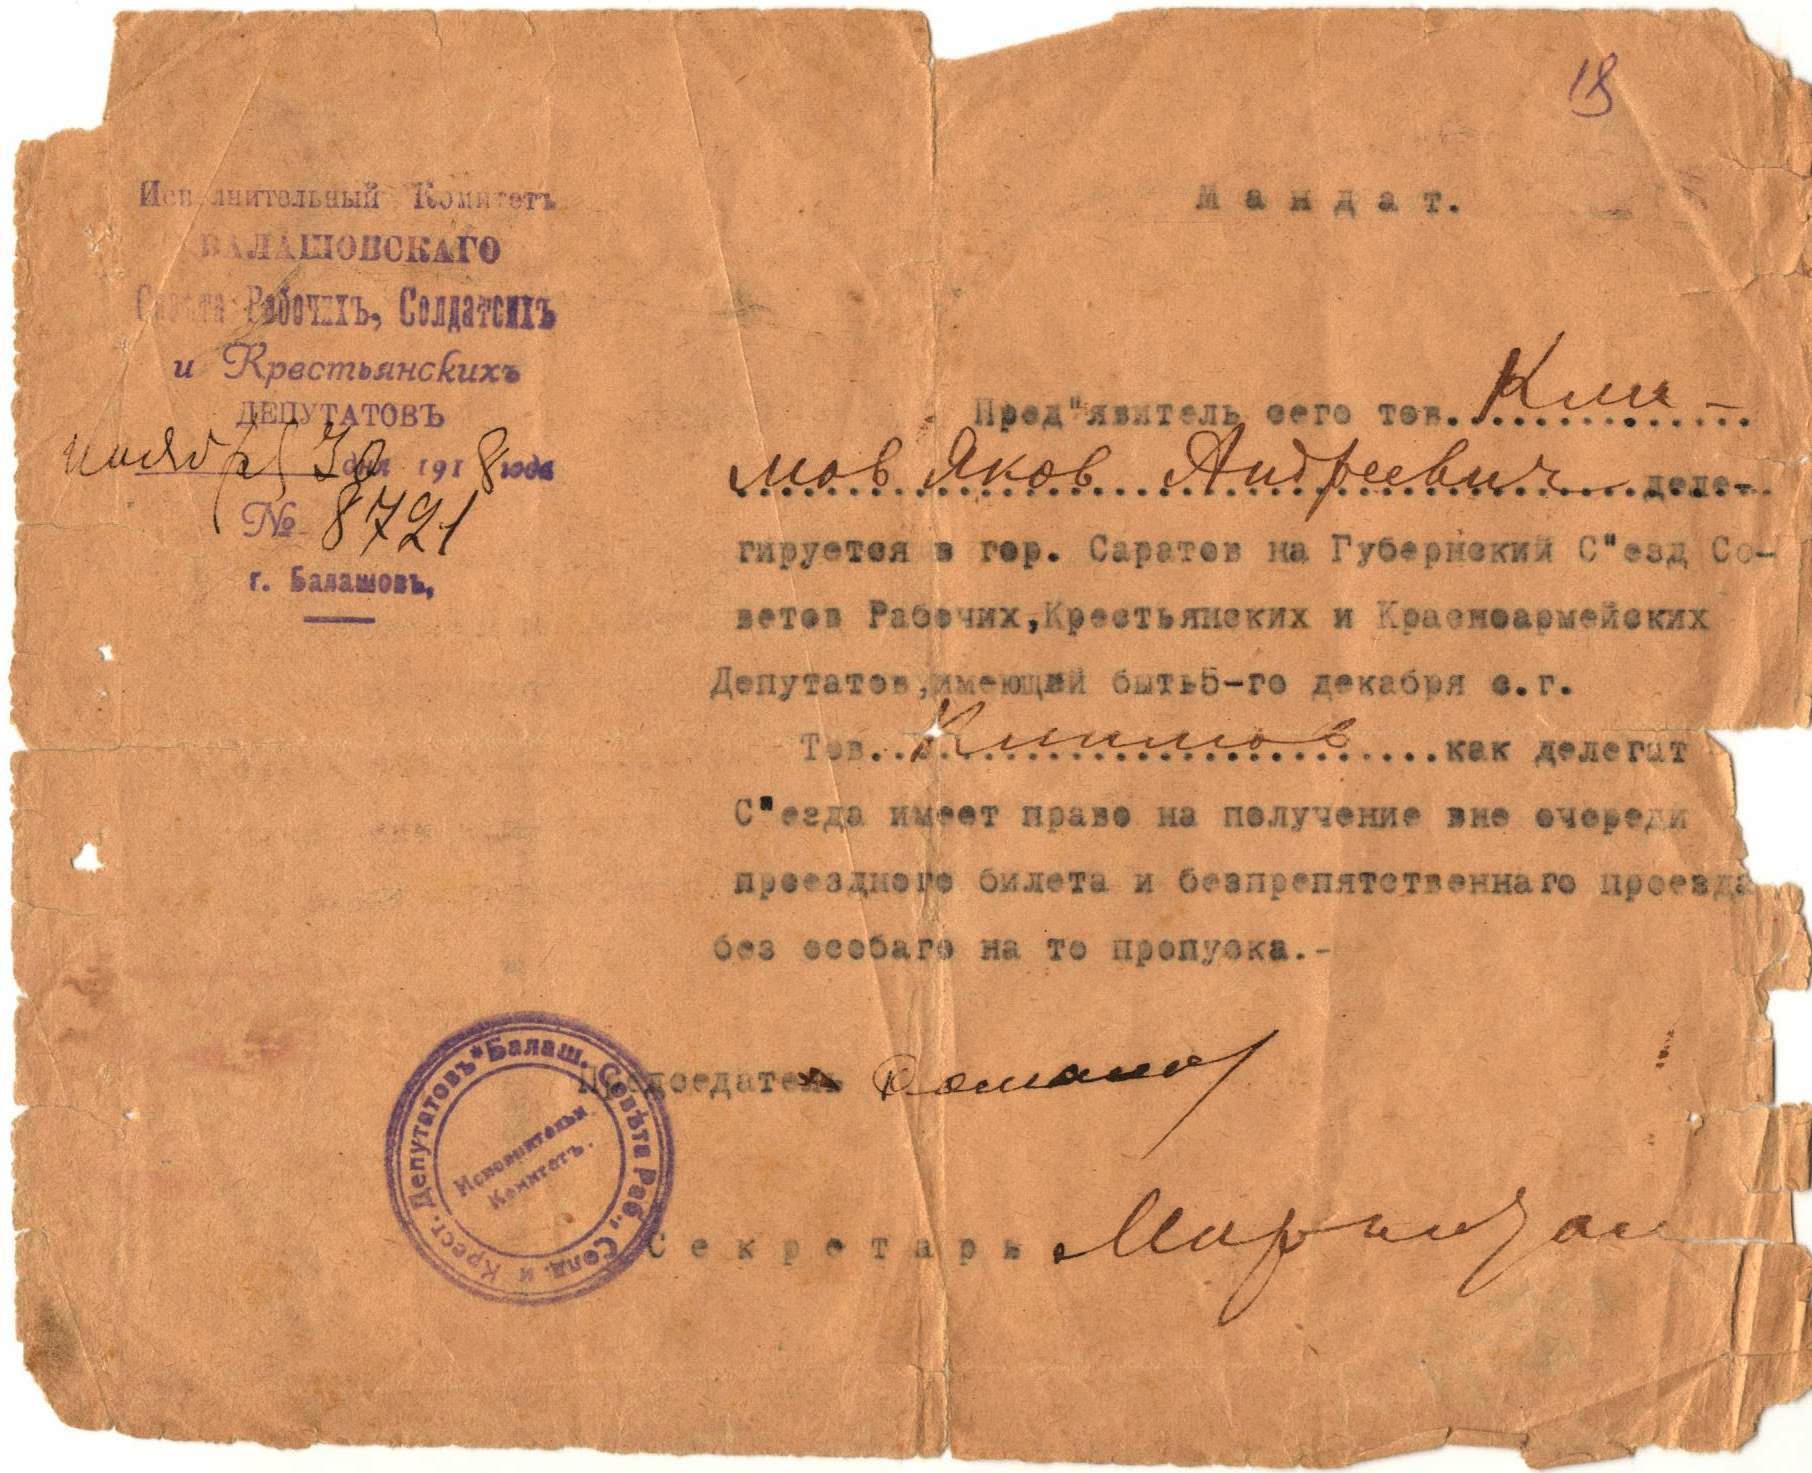 18
Исполнительный Комитетъ
БАЛАШОВСКАГО
Совета Рабочихъ, Солдатсихъ
и Крестьянскихъ
ДЕПУТАТОВЪ
ноября 30 дня 1918 года
№ 8721
г. Балашовъ,
Мандат.
Пред"явитель сего тов. Кли-
мов Яков Андреевич деле-
гируется в гор. Саратов на Губернский С"езд Со-
ветов Рабочих,Крестьянских и Красноармейских
Депутатов,имеющий быть5-го декабря с.г.
Тов. Климов как делегат
С"езда имеет право на получение вне очереди
проезднего билета и безпрепятственнаго проезда
без особаго на то пропуска.-
Председатель
Секретарь
Балаш. Совѣта Раб., Солд. и Крест. Депутатовъ *
Исполнительный
Комитетъ.